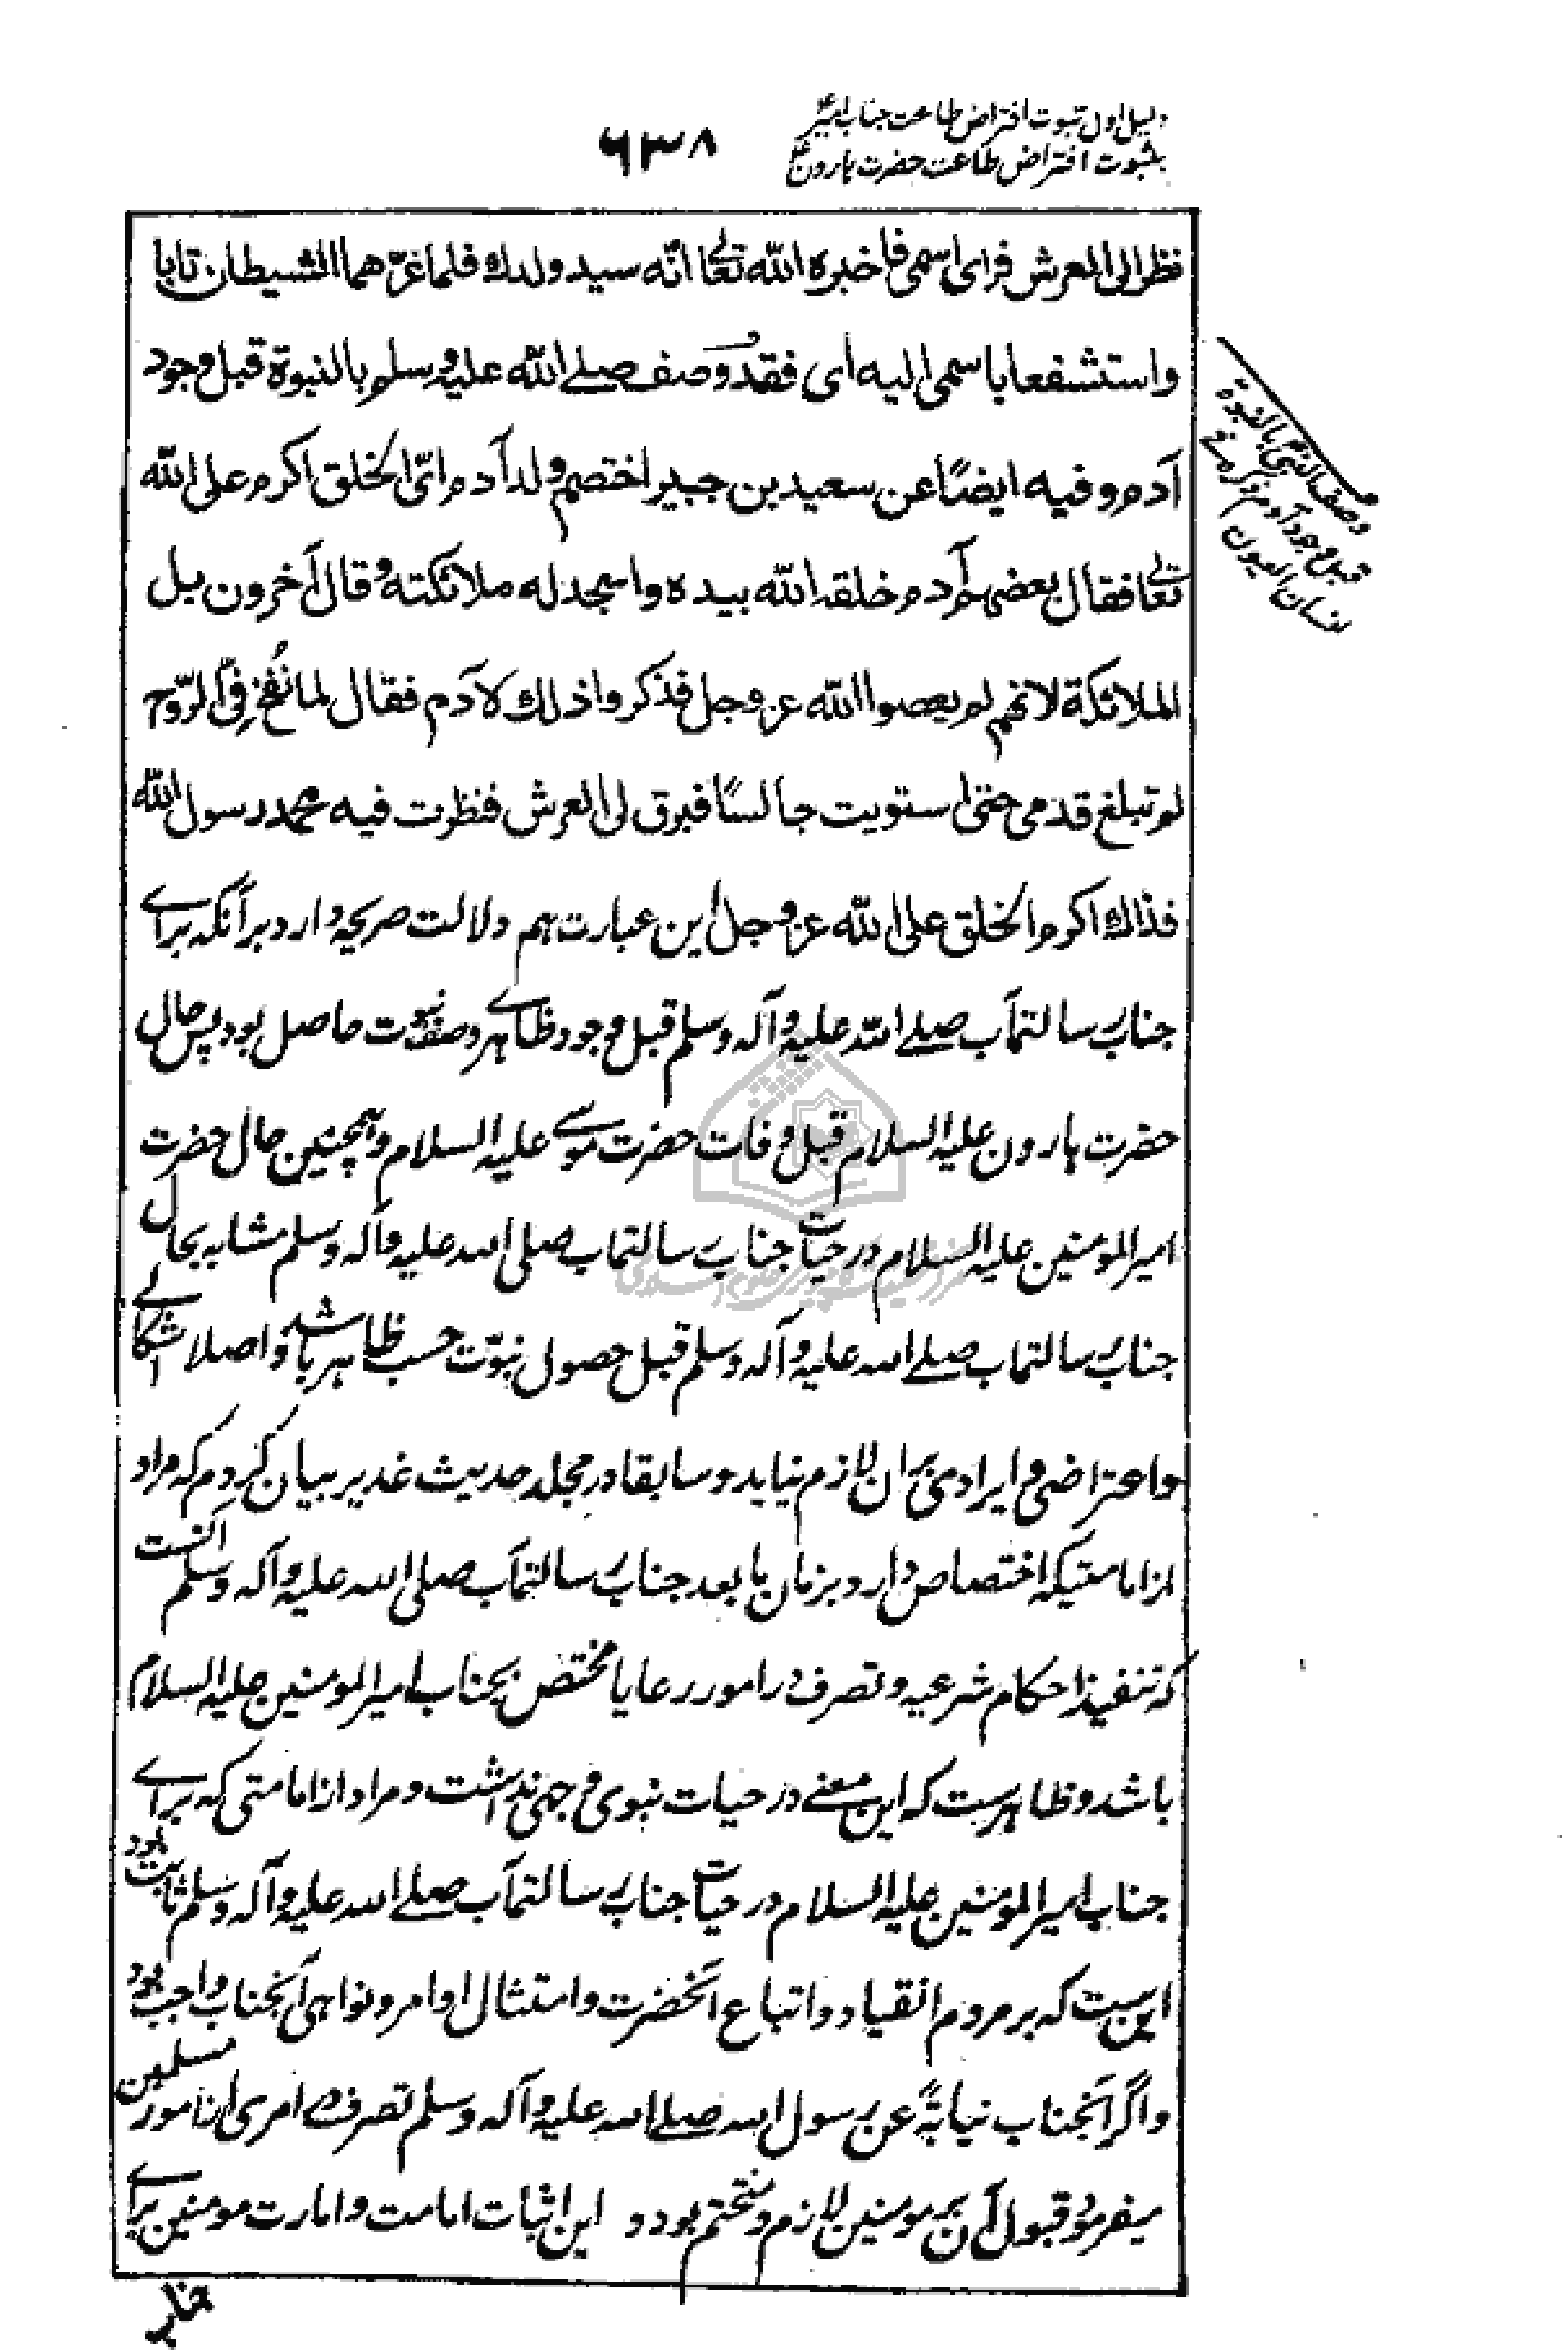 دلیل اول ثبوت افتراض طاعت جناب امیرؑ
بثبوت افتراض طاعت حضرت ہارونؑ
۶۳۸
نظر الی العرش فرای اسمی فاخبره الله تعالی انّه سید ولدك فلما غرّهما الشیطان تابا
واستشفعا باسمی الیه ای فقد وُصف صلے الله علیه وسلم بالنبوة قبل وجود
آدم وفیه ایضًا عن سعید بن جبیر اختصم ولد آدم ایّ الخلق اکرم علی الله
تعالی فقال بعضهم آدم خلقه الله بیده واسجد له ملائکته وقال آخرون بل
الملائکة لانهم لم یعصوا الله عز وجل فذکروا ذلك لآدم فقال لما نُفخ فیّ الرّوح
لم تبلغ قدمی حتی استویت جالسًا فبرق لی العرش فنظرت فیه محمد رسول الله
فذاك اکرم الخلق علی الله عز وجل این عبارت ہم دلالت صریحہ دارد بر آنکہ براے
جناب رسالتمآب صلے الله علیہ وآلہ وسلم قبل وجود ظاہرے وصف نبوت حاصل بود پس حال
حضرت ہارون علیہ السلام قبل وفات حضرت موسے علیہ السلام وہمچنین حال حضرت
امیر المؤمنین علیہ السلام در حیات جناب رسالتماب صلی الله علیہ وآلہ وسلم مشابہ بحال
جناب رسالتماب صلے الله علیہ وآلہ وسلم قبل حصول نبوّت حسب ظاہر باشد واصلا اشکالے
واعتراضی وایرادی بر ان لازم نیاید و سابقا در مجلد حدیث غدیر بیان کردم کہ مراد
از امامتیکہ اختصاص دارد بزمان ما بعد جناب رسالتمآب صلی الله علیہ وآلہ وسلم آنست
کہ تنفیذ احکام شرعیہ وتصرف در امور رعایا مختص بجناب امیر المومنین علیہ السلام
باشد وظاہرست کہ این معنے در حیات نبوی وجہی نداشت ومراد از امامتی کہ براے
جناب امیر المومنین علیہ السلام در حیات جناب رسالتمآب صلے الله علیہ وآلہ وسلم ثابت بود
این ست کہ بر مردم انقیاد واتباع آنحضرت وامتثال اوامر ونواہی آنجناب واجب بود
واگر آنجناب نیابةً عن رسول الله صلے الله علیہ وآلہ وسلم تصرف در امری از امور مسلمین
میفرمود قبول آن بر مومنین لازم ومتحتم بود و این اثبات امامت وامارت مومنین براے
وصف النبیؐ بالنبوة
قبل وجود آدم مذکورة فی
انسان العیون
جناب